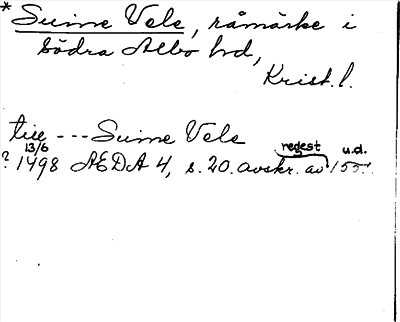 * Suine Vels, råmärke i
Södra Albo hd,
Krist. l.
till --- Suine Vels
13/6 regest u.d.
? 1498 AEDA 4, s. 20. avskr. av